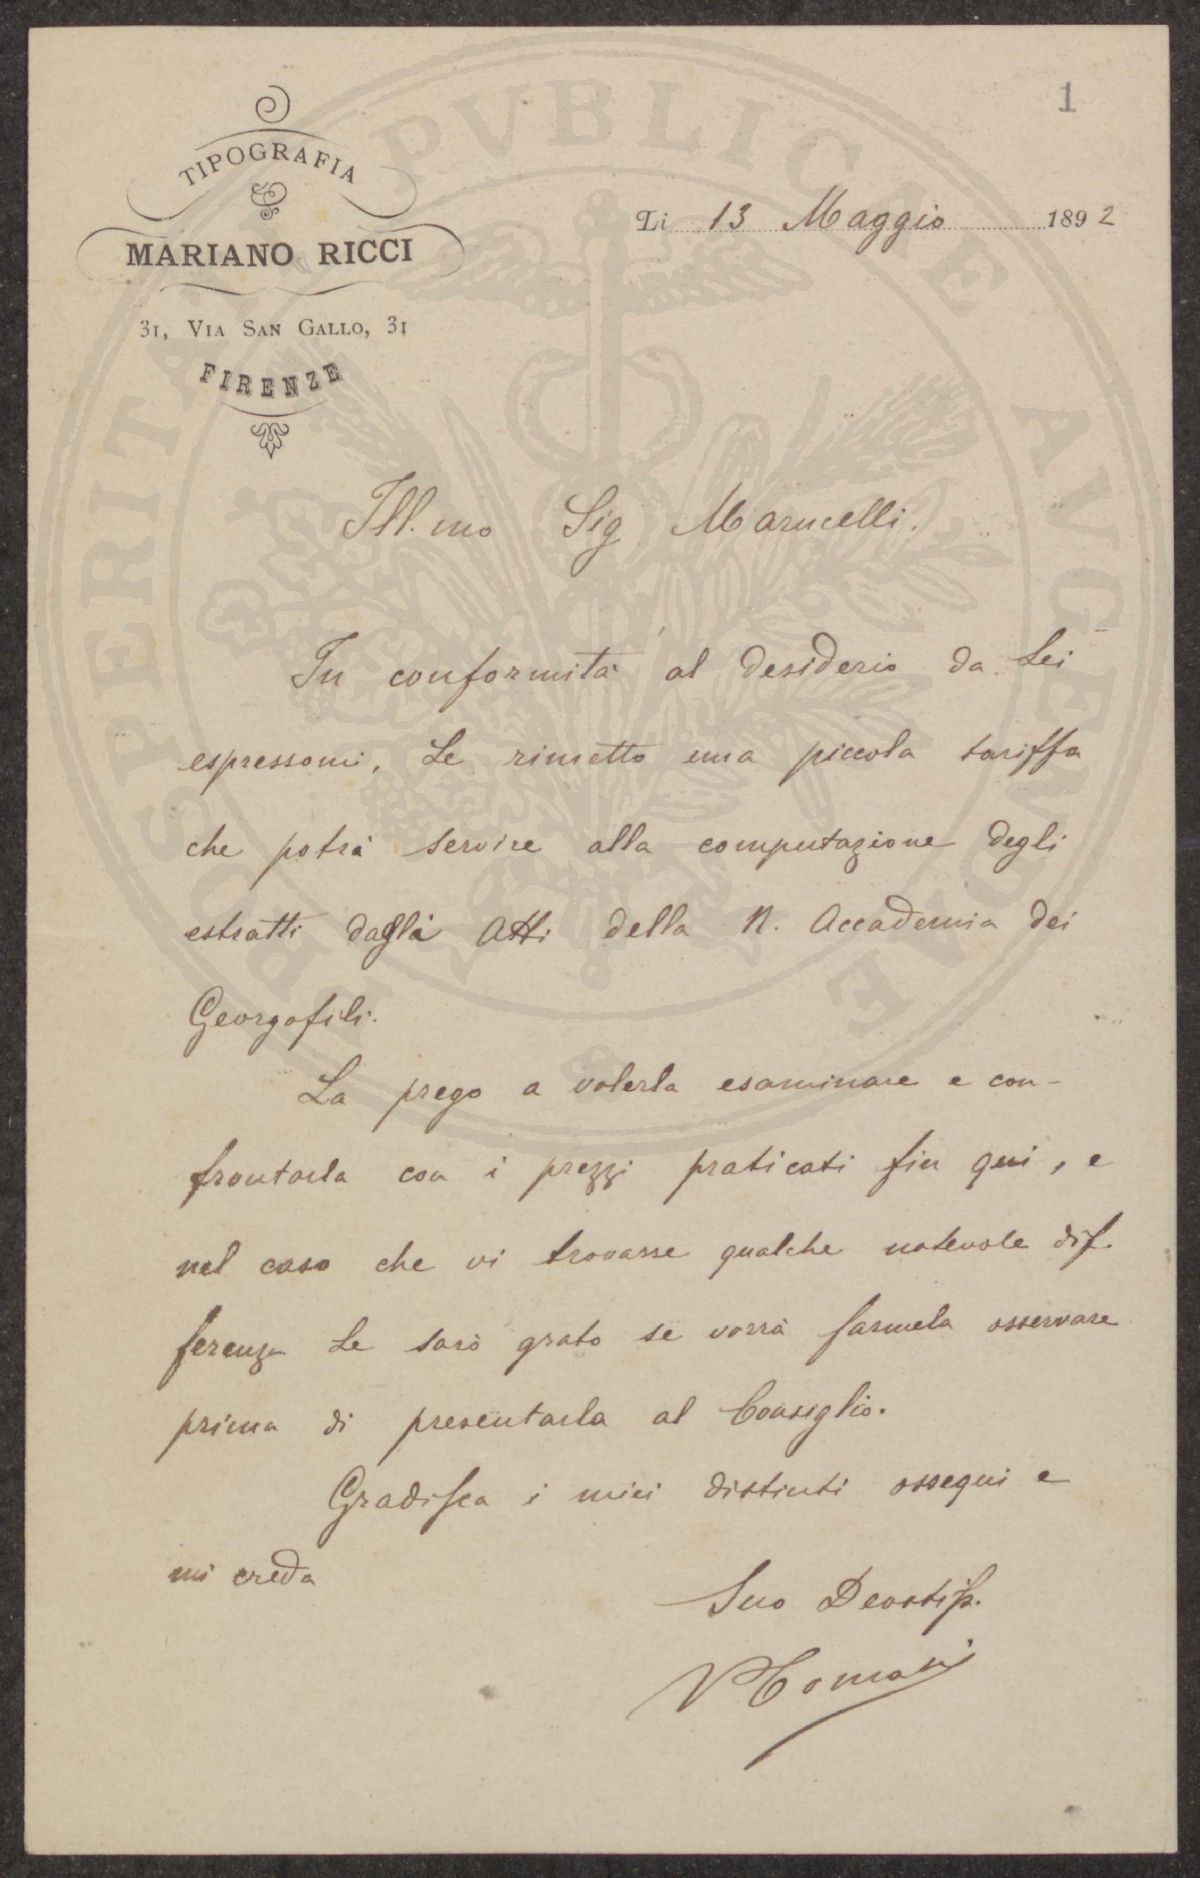 1
TIPOGRAFIA
MARIANO RICCI
31, VIA SAN GALLO, 31
FIRENZE
Li 13 Maggio 1892
PROSPERITATI PVBLICAE AVGENDAE
Ill.mo Sig Marucelli.
In conformità al desiderio da Lei
espressomi, Le rimetto una piccola tariffa
che potrà servire alla computazione degli
estratti dagli Atti della R. Accademia dei
Georgofili.
La prego a volerla esaminare e con-
frontarla con i prezzi praticati fin qui, e
nel caso che vi trovasse qualche notevole dif-
ferenza Le sarò grato se vorrà farmela osservare
prima di presentarla al Consiglio.
Gradisca i miei distinti ossequi e
mi creda
Suo Devotiss.